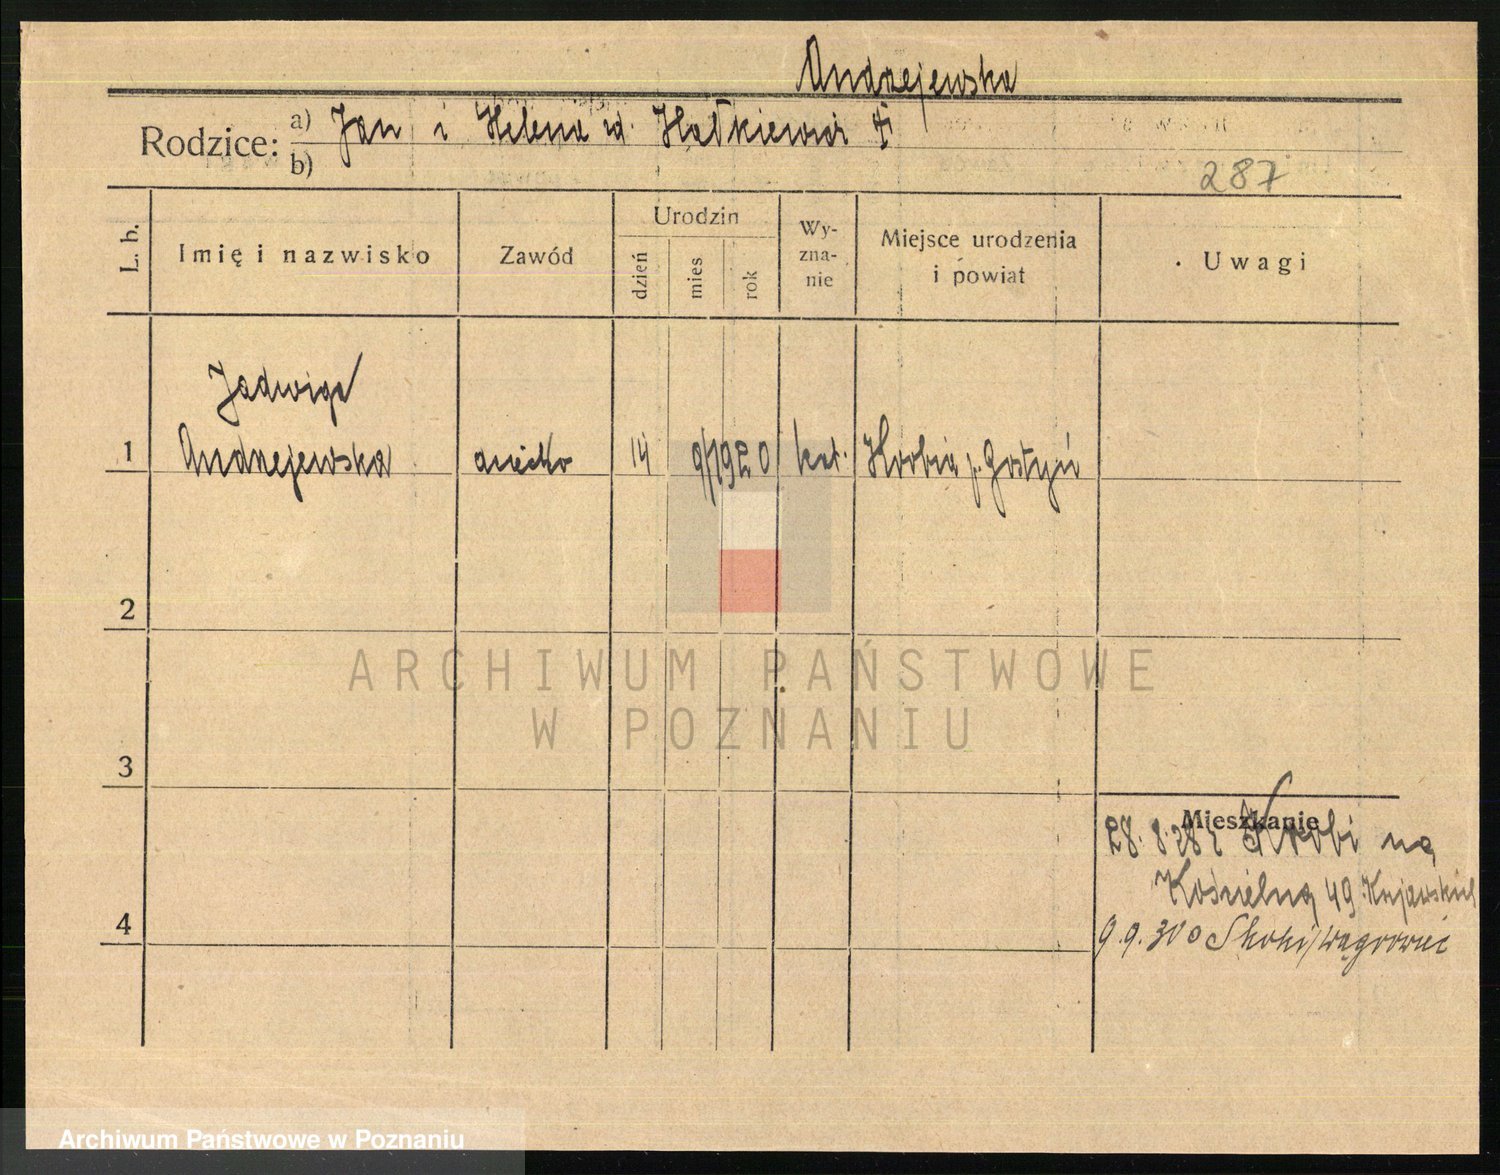 Andrzejewska
Rodzice: a) Jan i Helena
b)
287
L. b.
Imię i nazwisko
Zawód
Urodzin
dzień
mies
rok
Wy-
zna-
nie
Miejsce urodzenia
i powiat
Uwagi
Jadwiga
1 Andrzejewska dziecko 14 9/1920 kat. p. Gostyń
2
ARCHIWUM PAŃSTWOWE
W POZNANIU
3
Mieszkanie
28. 8. 28 z na
Kościelną 49
4
9. 9. 30 do Skoki/Wągrowiec
Archiwum Państwowe w Poznaniu